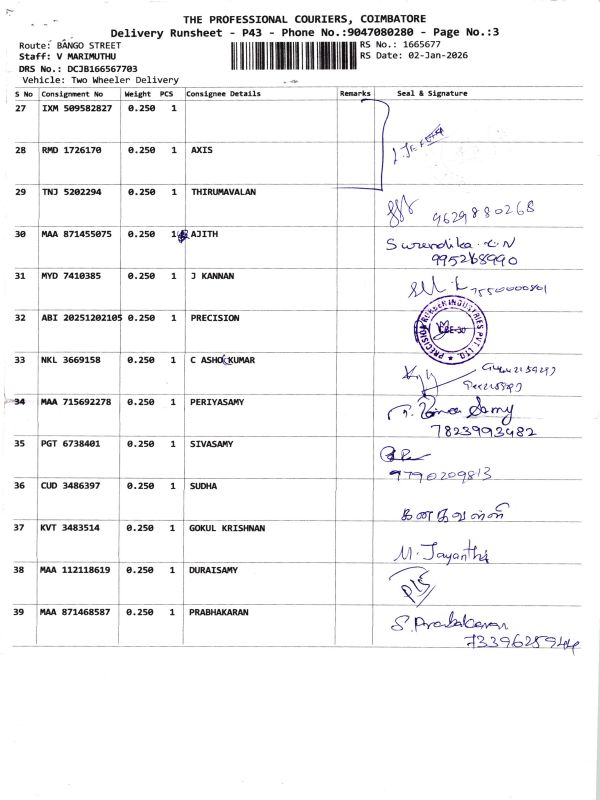 THE PROFESSIONAL COURIERS, COIMBATORE
Delivery Runsheet - P43 - Phone No.:9047080280 - Page No.:3
Route: BANGO STREET
RS No.: 1665677
Staff: V MARIMUTHU
RS Date: 02-Jan-2026
DRS No.: DCJB166567703
Vehicle: Two Wheeler Delivery
S No Consignment No Weight PCS Consignee Details Remarks Seal & Signature
27 IXM 509582827 0.250 1
28 RMD 1726170 0.250 1 AXIS
29 TNJ 5202294 0.250 1 THIRUMAVALAN
9629880268
30 MAA 871455075 0.250 1 AJITH
Surendika.C.N
995268990
31 MYD 7410385 0.250 1 J KANNAN
7550000801
32 ABI 20251202105 0.250 1 PRECISION
PRECISION RUBBER INDUSTRIES PVT. LTD.
CBE-30
33 NKL 3669158 0.250 1 C ASHOKKUMAR
34 MAA 715692278 0.250 1 PERIYASAMY
Samy
7823993482
35 PGT 6738401 0.250 1 SIVASAMY
9790209813
36 CUD 3486397 0.250 1 SUDHA
கனகவள்ளி
37 KVT 3483514 0.250 1 GOKUL KRISHNAN
M. Jayanthi
38 MAA 112118619 0.250 1 DURAISAMY
39 MAA 871468587 0.250 1 PRABHAKARAN
S. Prabakaran
7339628944